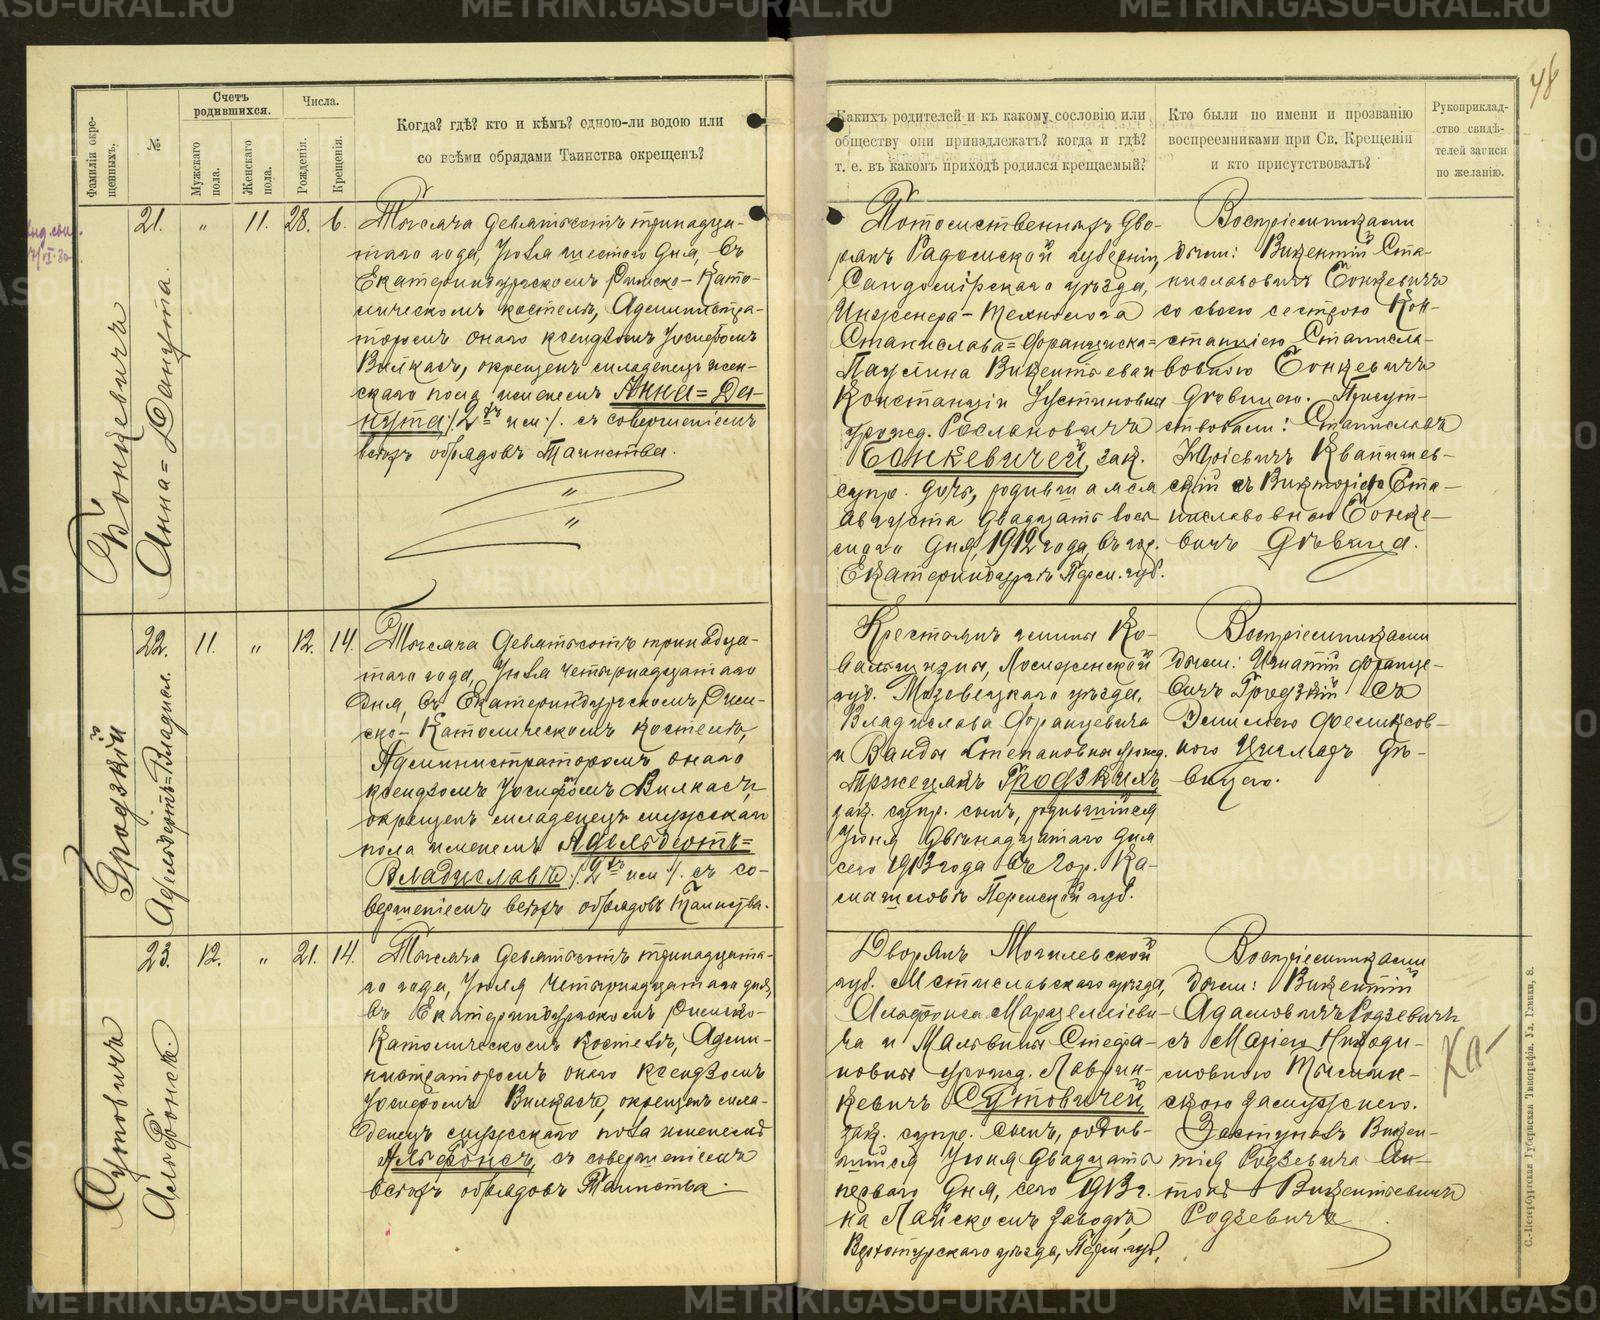 METRIKI.GASO-URAL.RU
48
Фамиліи окре-
щенныхъ.
№
Счетъ
родившихся.
Мужскаго
пола.
Женскаго
пола.
Числа.
Рожденія.
Крещенія.
Когда? гдѣ? кто и кѣмъ? одною-ли водою или
со всѣми обрядами Таинства окрещенъ?
Какихъ родителей и къ какому сословію или
обществу они принадлежатъ? когда и гдѣ?
т. е. въ какомъ приходѣ родился крещаемый?
Кто были по имени и прозванію
воспреемниками при Св. Крещеніи
и кто присутствовалъ?
Рукоприклад-
ство свидѣ-
телей записи
по желанію.
Бонкевичъ
Анна=Данута.
21.
"
11.
28.
6.
Тысяча девятьсотъ тринадца-
таго года, Іюля шестого дня, въ
Екатеринбургскомъ Римско-Като-
лическомъ костелѣ, Администра-
торомъ онаго ксендзомъ Іосифомъ
Вилкасъ, окрещенъ младенецъ жен-
скаго пола именемъ Анна=Да-
нута /2хъ им/. съ совершеніемъ
всѣхъ обрядовъ Таинства.
"
"
Потомственныхъ дво-
рянъ Радомской губерніи,
Сандомірскаго уѣзда,
Инженера-Технолога
Станислава=Франциска=
Паулина Викентьева и
Констанціи Іустиновны
урожд. Рослановичъ
Бонкевичей, зак.
супр. дочь, родившаяся
Августа двадцать вось-
маго дня, 1912 года, въ гор.
Екатеринбургѣ Перм. губ.
Воспріемниками
были: Викентій Ста-
ниславовичъ Бонкевичъ
со своею сестрою Кон-
станціею Станисла-
вовною Бонкевичъ
дѣвицею. Присут-
ствовали: Станиславъ
Юріевичъ Квапишев-
скій съ Викторіею Ста-
ниславовною Бонке-
вичъ дѣвица.
Гродзкій
Адельбертъ=Владислъ.
22.
11.
"
12.
14.
Тысяча девятьсотъ тринадца-
таго года, Іюля четырнадцатаго
дня, въ Екатеринбургскомъ Рим-
ско-Католическомъ костелѣ,
Администраторомъ онаго
ксендзомъ Іосифомъ Вилкасъ,
окрещенъ младенецъ мужскаго
пола именемъ Адельбертъ=
Владиславъ /2хъ им/. съ со-
вершеніемъ всѣхъ обрядовъ Таинства.
Крестьянъ гмины Ко-
Ломженской
губ. Мазовецкаго уѣзда,
Владислава Францевича
и Ванды Степановны урожд.
Гродзкихъ
зак. супр. сынъ, родившійся
Іюня двѣнадцатаго дня
сего 1913 года въ гор. Ка-
мышловѣ Пермской губ.
Воспріемниками
были: Игнатій Франце-
вичъ Гродзкій съ
Эмиліею Феликсов-
ною дѣ-
вицею.
Сутовичъ
Альфонсъ.
23.
12.
"
21.
14.
Тысяча девятьсотъ тринадцата-
го года, Іюля четырнадцатаго дня,
въ Екатеринбургскомъ Римско-
Католическомъ костелѣ, Адми-
нистраторомъ онаго ксендзомъ
Іосифомъ Вилкасъ, окрещенъ мла-
денецъ мужскаго пола именемъ
Альфонсъ, съ совершеніемъ
всѣхъ обрядовъ Таинства.
Дворянъ Могилевской
губ. Мстиславскаго уѣзда,
Альфонса Марцелліеви-
ча и Мальвины Стефа-
новны урожд. Лаврин-
кевичъ Сутовичей,
зак. супр. сынъ, родив-
шійся Іюня двадцать
перваго дня, сего 1913 г.
на Лайскомъ заводѣ
Верхотурскаго уѣзда, Перм. губ.
Воспріемниками
были: Викентій
Адамовичъ Родзевичъ
съ Маріею Никоди-
мовною
замужнею.
Заступалъ Викен-
тія Родзевича Ан-
тонъ Викентьевичъ
Родзевичъ
Ка-
С.-Петербургская Губернская Типографія. Ул. Глинки, 8.